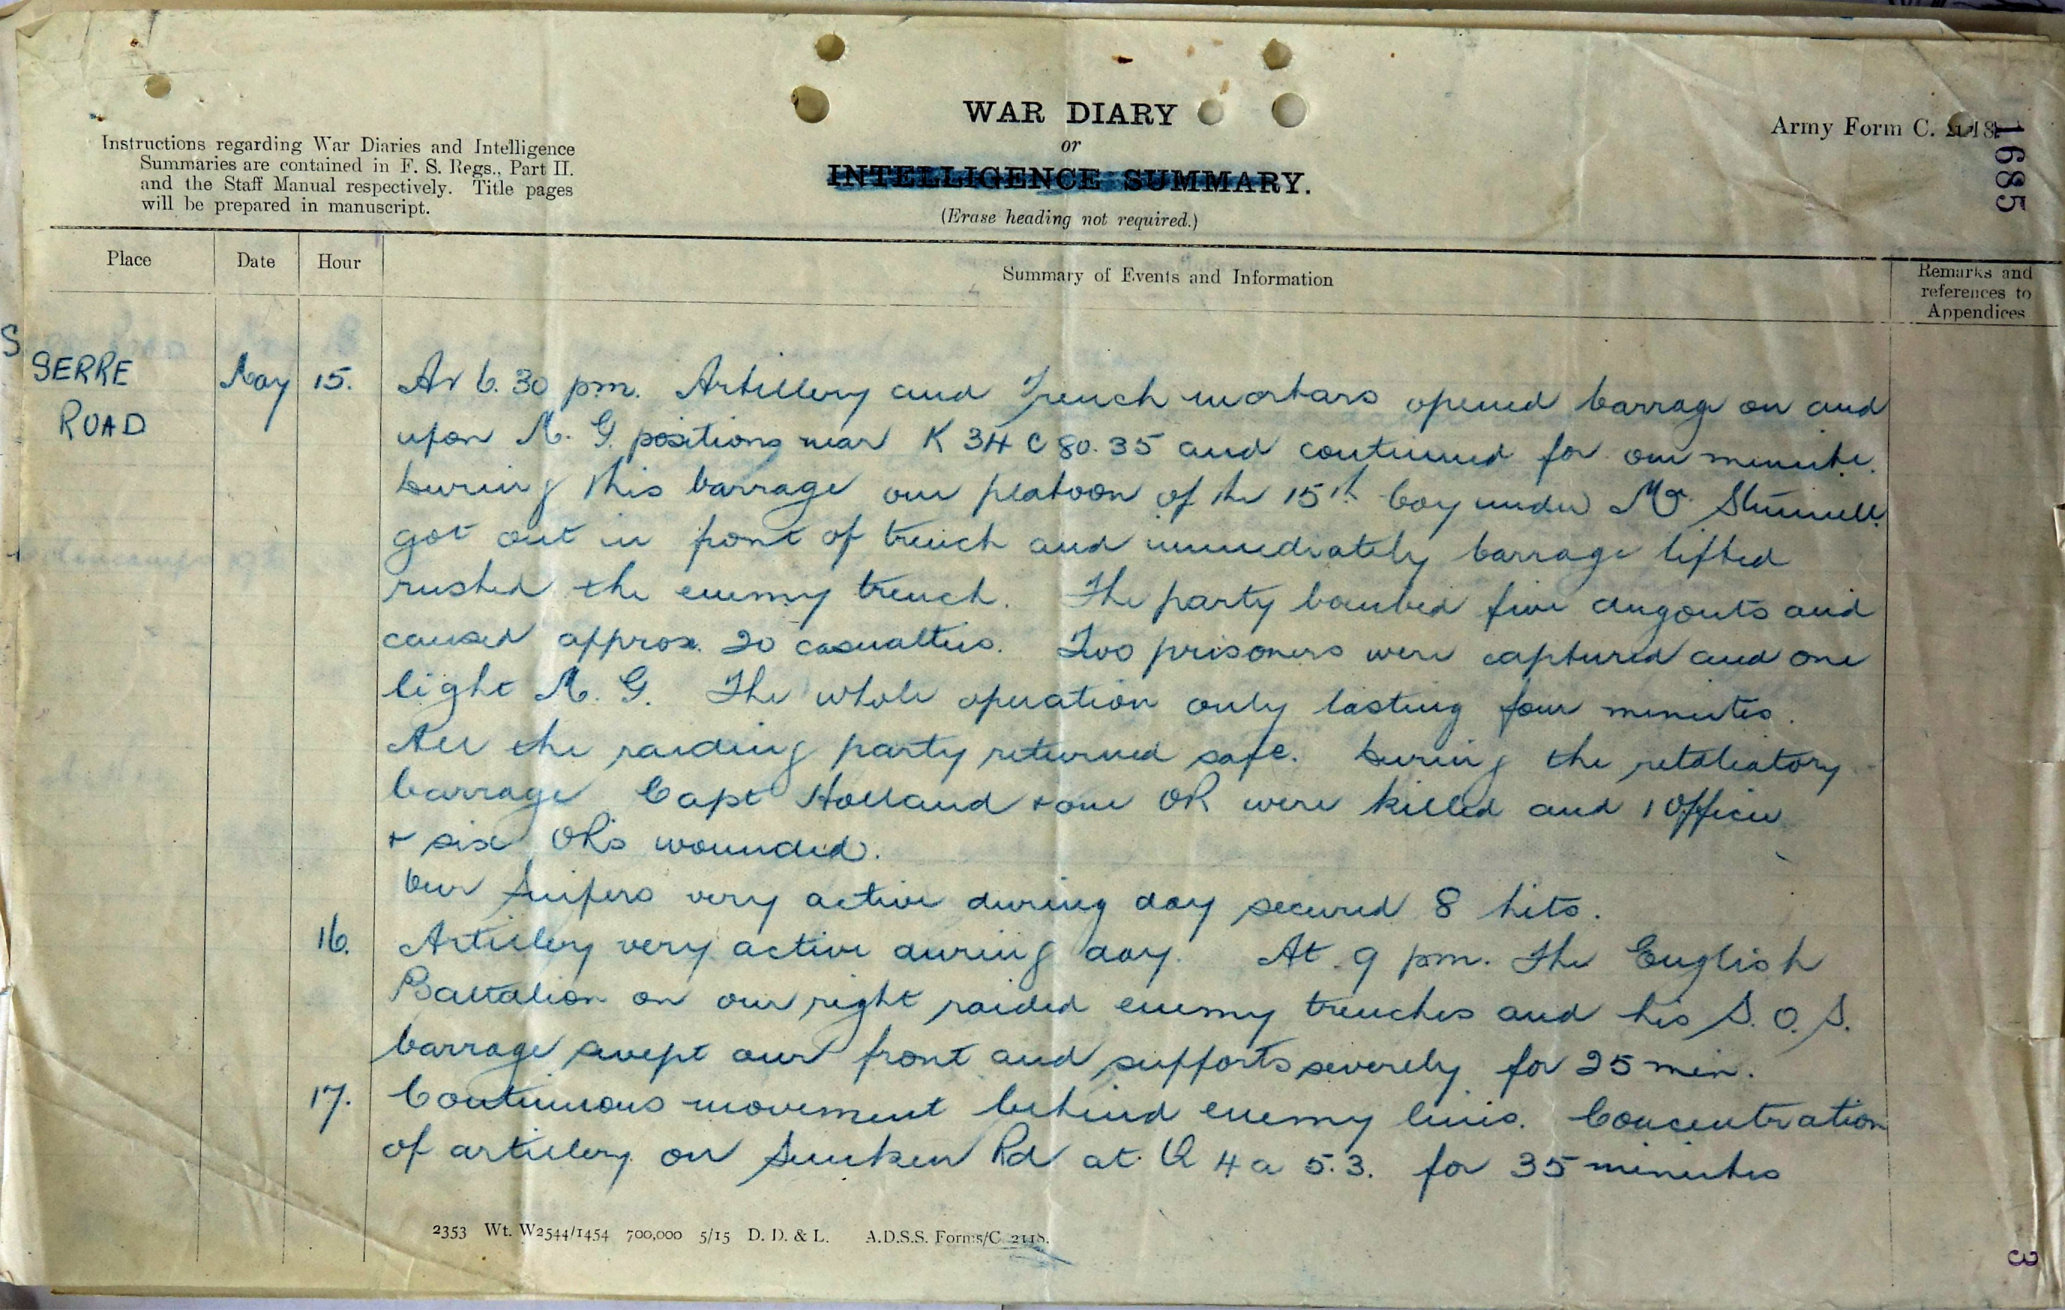 WAR DIARY
or
INTELLIGENCE SUMMARY.
(Erase heading not required.)
Army Form C. 2118.
1685
Instructions regarding War Diaries and Intelligence
Summaries are contained in F. S. Regs., Part II.
and the Staff Manual respectively. Title pages
will be prepared in manuscript.
Place Date Hour Summary of Events and Information Remarks and
references to
Appendices
S
SERRE May 15. At 6.30 pm. Artillery and Trench mortars opened barrage on and
ROAD upon M. G. positions near K 34 C 80.35 and continued for one minute.
During this barrage one platoon of the 15th Coy under Mr.
got out in front of trench and immediately barrage lifted
rushed the enemy trench. The party bombed five dugouts and
caused approx. 20 casualties. Two prisoners were captured and one
light M. G. The whole operation only lasting four minutes.
All the raiding party returned safe. During the retaliatory
barrage Capt Holland + one OR were killed and 1 Officer
+ six ORs wounded.
Our Snipers very active during day secured 8 hits.
16. Artillery very active during day. At 9 pm. the English
Battalion on our right raided enemy trenches and his S.O.S.
barrage swept our front and supports severely for 25 min.
17. Continuous movement behind enemy lines. Concentration
of artillery on Sunken Rd at Q 4 a 5.3. for 35 minutes
2353 Wt. W2544/1454 700,000 5/15 D. D. & L. A.D.S.S. Forms/C. 2118.
3